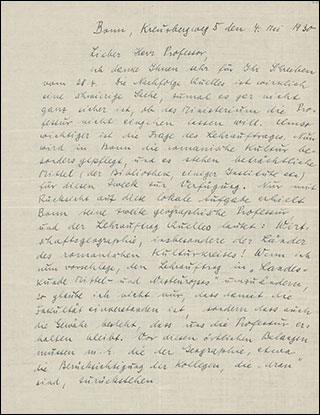 Bonn, Kreuzbergweg 5 den 4. Mai 1930
Lieber Herr Professor,
ich danke Ihnen sehr für Ihr Schreiben
vom 28.4. Die Nachfolge Quelles ist wirklich
eine schwierige Sache, zumal es gar nicht
ganz sicher ist, ob das Ministerium die Pro-
fessur nicht eingehen lassen will. Umso
wichtiger ist die Frage des Lehrauftrages. Nun
wird in Bonn die romanische Kultur be-
sonders gepflegt, und es stehen beträchtliche
Mittel (der Bibliothek, einiger Institute etc)
für diesen Zweck zur Verfügung. Nur mit
Rücksicht auf diese lokale Aufgabe erhielt
Bonn seine zweite geographische Professur
und der Lehrauftrag Quelles lautet: Wirt-
schaftsgeographie, insbesondere der Länder
des romanischen Kulturkreises! Wenn ich
nun vorschlage, den Lehrauftrag in "Landes-
kunde Mittel- und Westeuropas" umzuändern,
so glaube ich nicht nur, dass damit die
Fakultät einverstanden ist, sondern dass auch
die Gewähr besteht, dass uns die Professur er-
halten bleibt. Vor diesen örtlichen Belangen
müssen m. E. die der Geographie, etwa
die Berücksichtigung der Kollegen, die "dran"
sind, zurückstehen